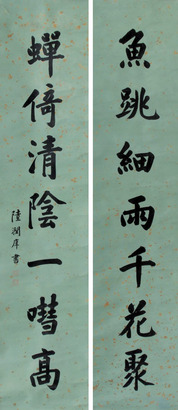 魚跳細雨千花聚
蟬倚清陰一噆高
陸潤庠書